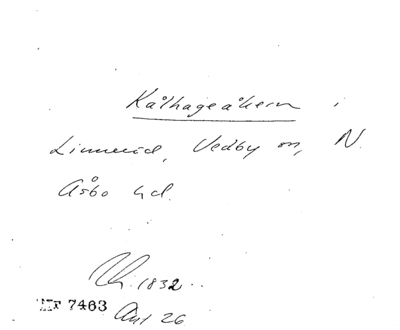 Kålhageåkern i
Linnerid, Vedby sn, N.
Åsbo hd.
1832
7463
Ant 26